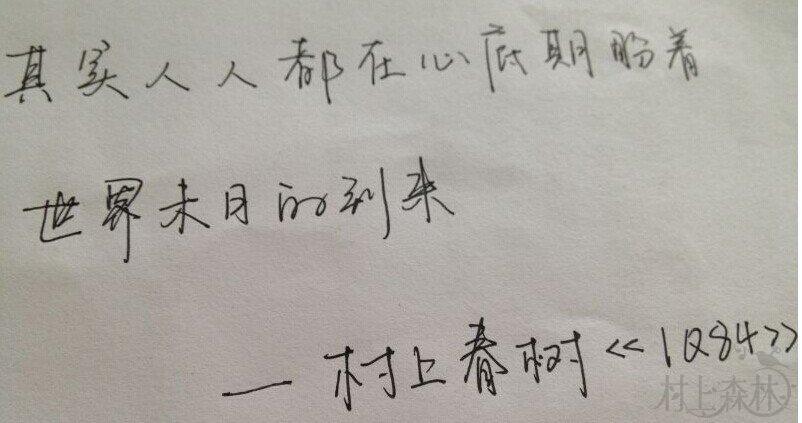 其实人人都在心底期盼着
世界末日的到来
— 村上春树 << 1Q84 >>
村上森林